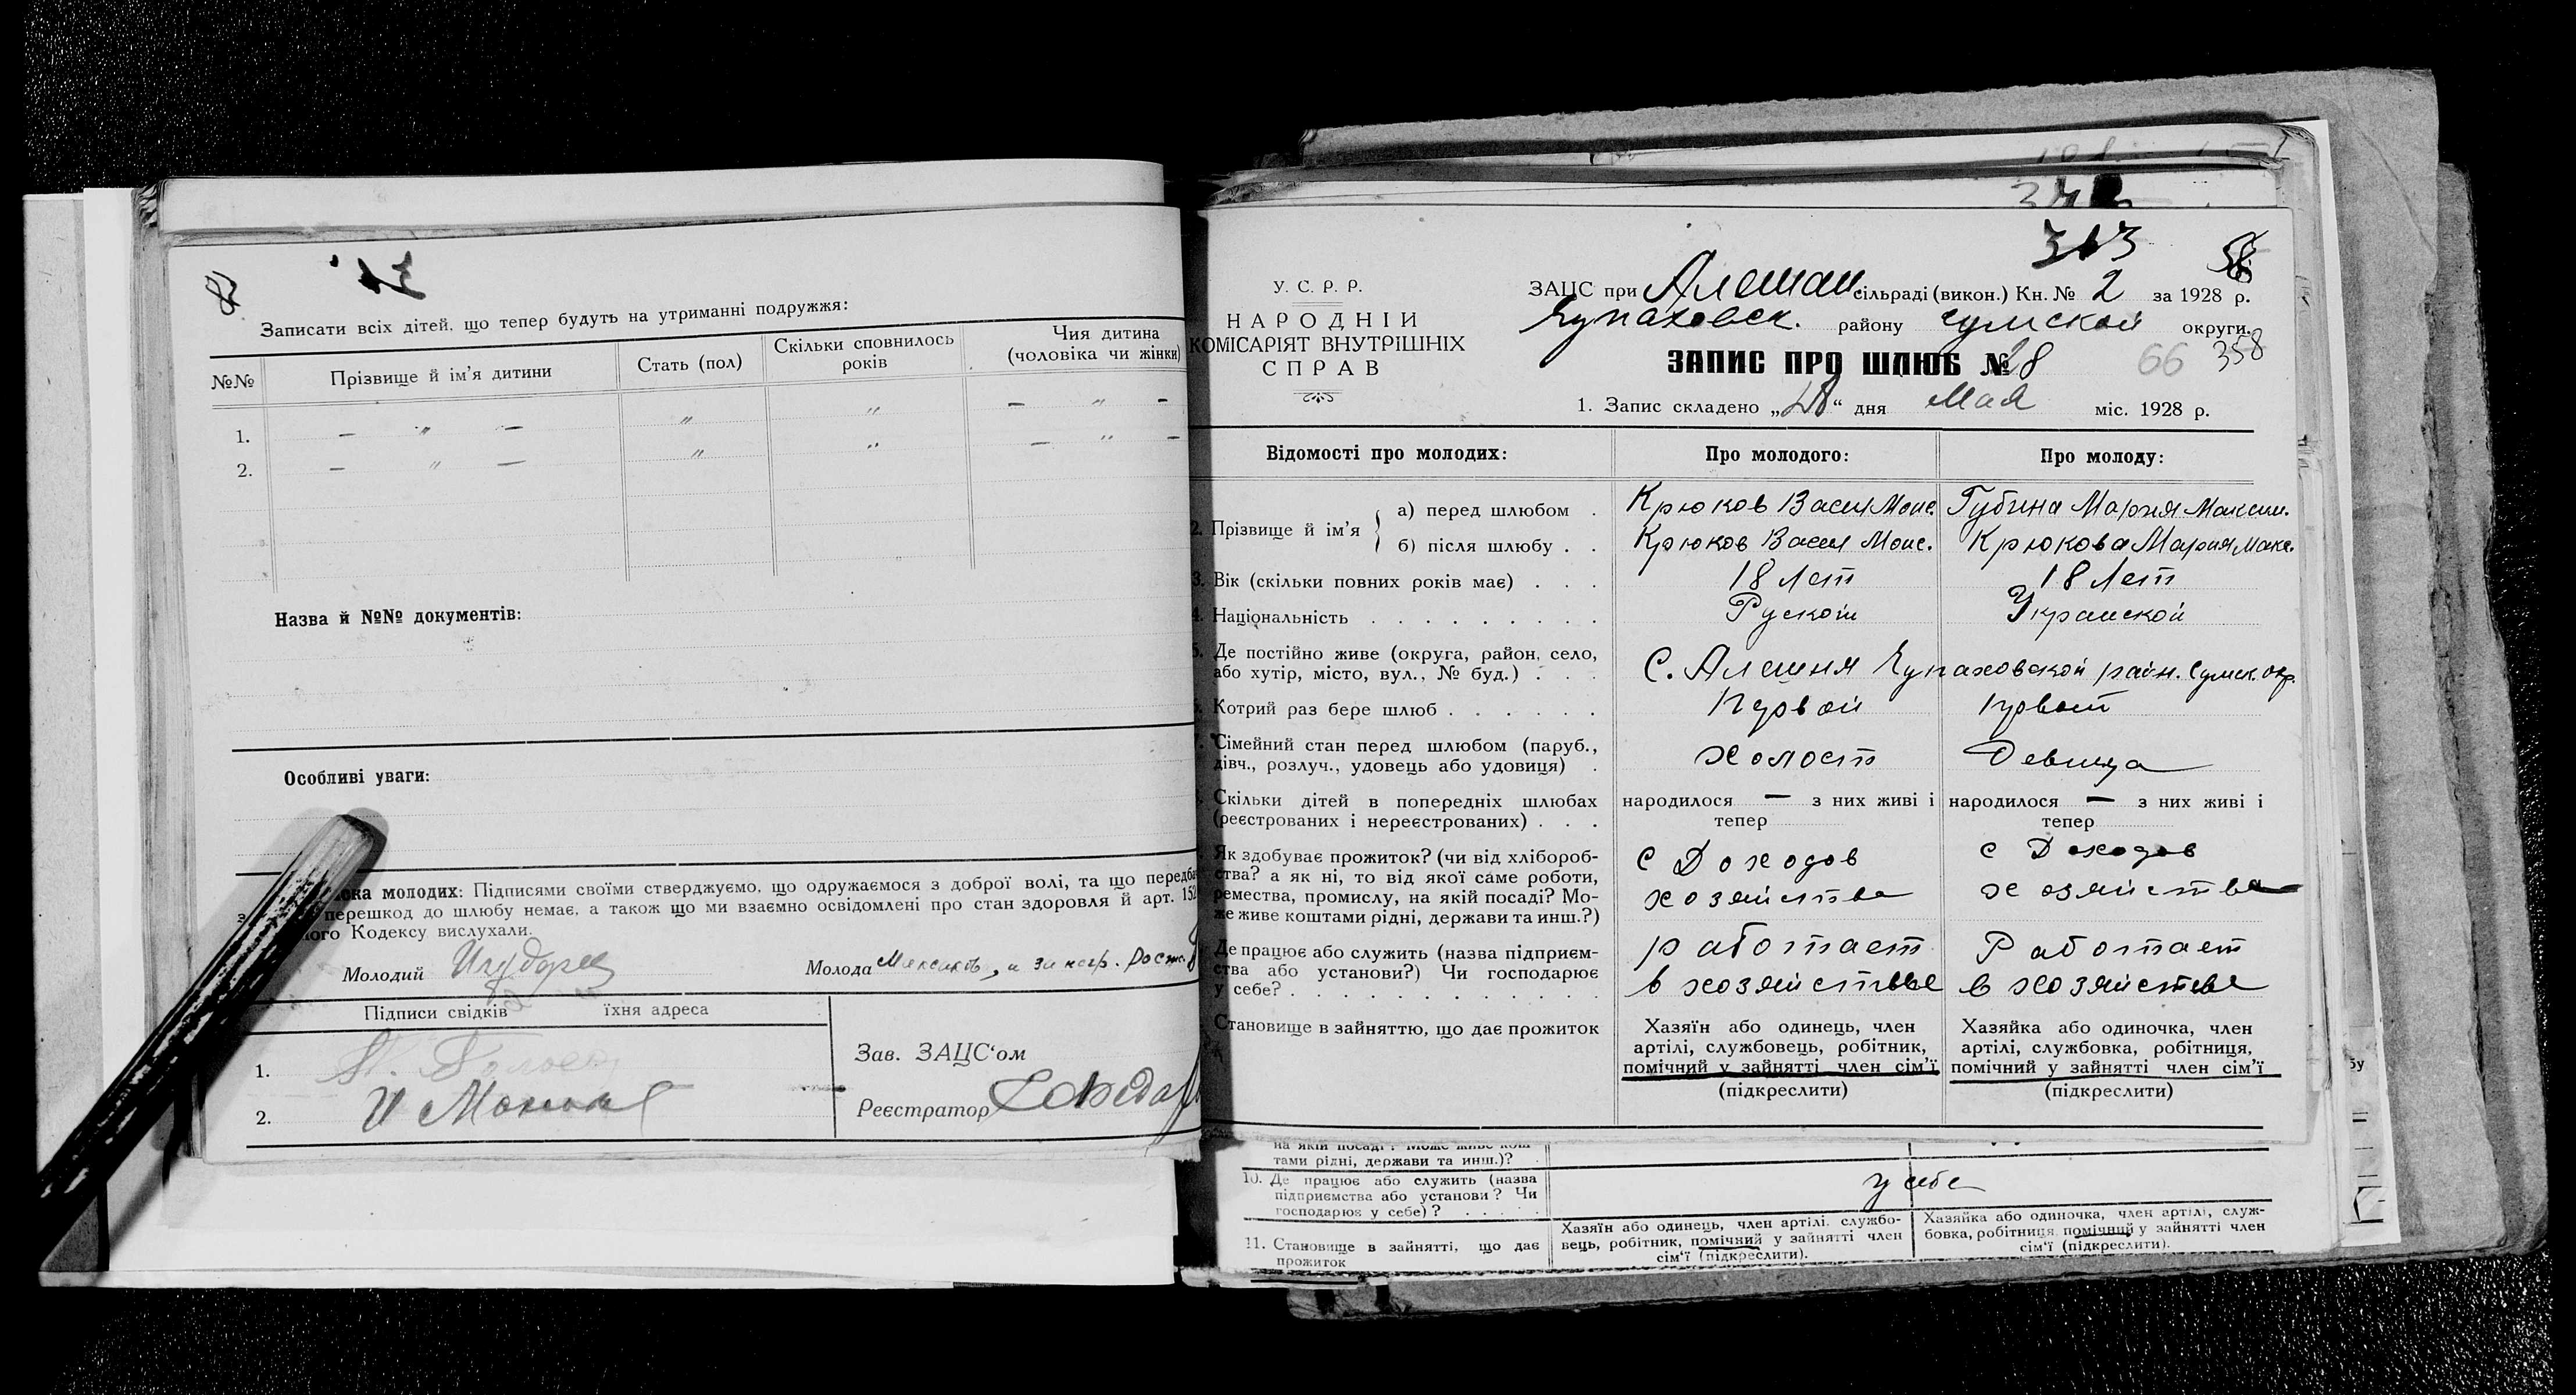 31
Записати всіх дітей, що тепер будуть на утриманні подружжя:
№№ Прізвище й ім'я дитини Стать (пол) Скільки сповнилось років Чия дитина (чоловіка чи жінки)
1. — „ — „ „ — „ —
2. — „ — „ „ — „ —
Назва й №№ документів:
Особливі уваги:
ока молодих: Підписями своїми стверджуємо, що одружаємося з доброї волі, та що передба
перешкод до шлюбу немає, а також що ми взаємно освідомлені про стан здоровля й арт. 152
ного Кодексу вислухали.
Молодий
Молода
Підписи свідків їхня адреса
1.
2. И
Зав. ЗАЦС'ом
Реєстратор
У. С. Р. Р.
НАРОДНІЙ
КОМІСАРІЯТ ВНУТРІШНІХ
СПРАВ
313 58
ЗАЦС при Алешан сільраді (викон.) Кн. № 2 за 1928 р.
Чупаховск. району Сумской округи.
ЗАПИС ПРО ШЛЮБ № 28 66 358
1. Запис складено „ “ дня Мая міс. 1928 р.
Відомості про молодих: Про молодого: Про молоду:
2. Прізвище й ім'я
а) перед шлюбом . Крюков Васил Моис. Губина Мария Максим.
б) після шлюбу . . Крюков Васил Моис. Крюкова Мария Макс.
3. Вік (скільки повних років має) . . . 18 Лет 18 Лет
4. Національність . . . . . . . . . Рускои Украиской
5. Де постійно живе (округа, район, село,
або хутір, місто, вул., № буд.) . . . С. Алешня Чупаховской райн. Сумск. окр.
6. Котрий раз бере шлюб . . . . . . Первой Првой
Сімейний стан перед шлюбом (паруб.,
дівч., розлуч., удовець або удовиця) . холост Девица
Скільки дітей в попередніх шлюбах
(реєстрованих і нереєстрованих) . . .
народилося — з них живі і тепер
народилося — з них живі і тепер
Як здобуває прожиток? (чи від хлібороб-
ства? а як ні, то від якої саме роботи,
ремества, промислу, на якій посаді? Мо-
же живе коштами рідні, держави та инш.?)
с Доходов
хозяйства
с Доходов
хозяйства
Де працює або служить (назва підприєм-
ства або установи?) Чи господарює
у себе? . . . . . . . . . . . .
работает
в хозяйстве
Работает
в хозяйстве
Становище в зайняттю, що дає прожиток
Хазяїн або одинець, член
артілі, службовець, робітник,
помічний у зайнятті член сім'ї
(підкреслити)
Хазяйка або одиночка, член
артілі, службовка, робітниця,
помічний у зайнятті член сім'ї
(підкреслити)
на якій посаді? Може живе кош-
тами рідні, держави та инш.)?
10. Де працює або служить (назва
підприємства або установи? Чи
господарює у себе)? . . . . .
у себе
11. Становище в зайнятті, що дає
прожиток
Хазяїн або одинець, член артілі, службо-
вець, робітник, помічний у зайнятті член
сім'ї (підкреслити).
Хазяйка або одиночка, член артілі, служ-
бовка, робітниця, помічний у зайнятті член
сім'ї (підкреслити).